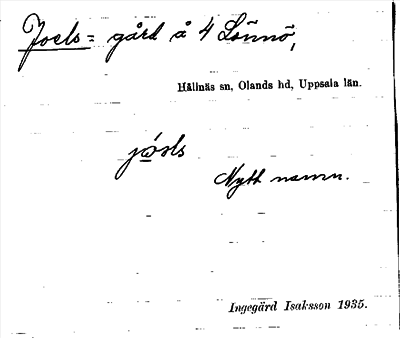 Joels= gård å 4 Lönnö,
Hållnäs sn, Olands hd, Uppsala län.
Nytt namn.
Ingegärd Isaksson 1935.